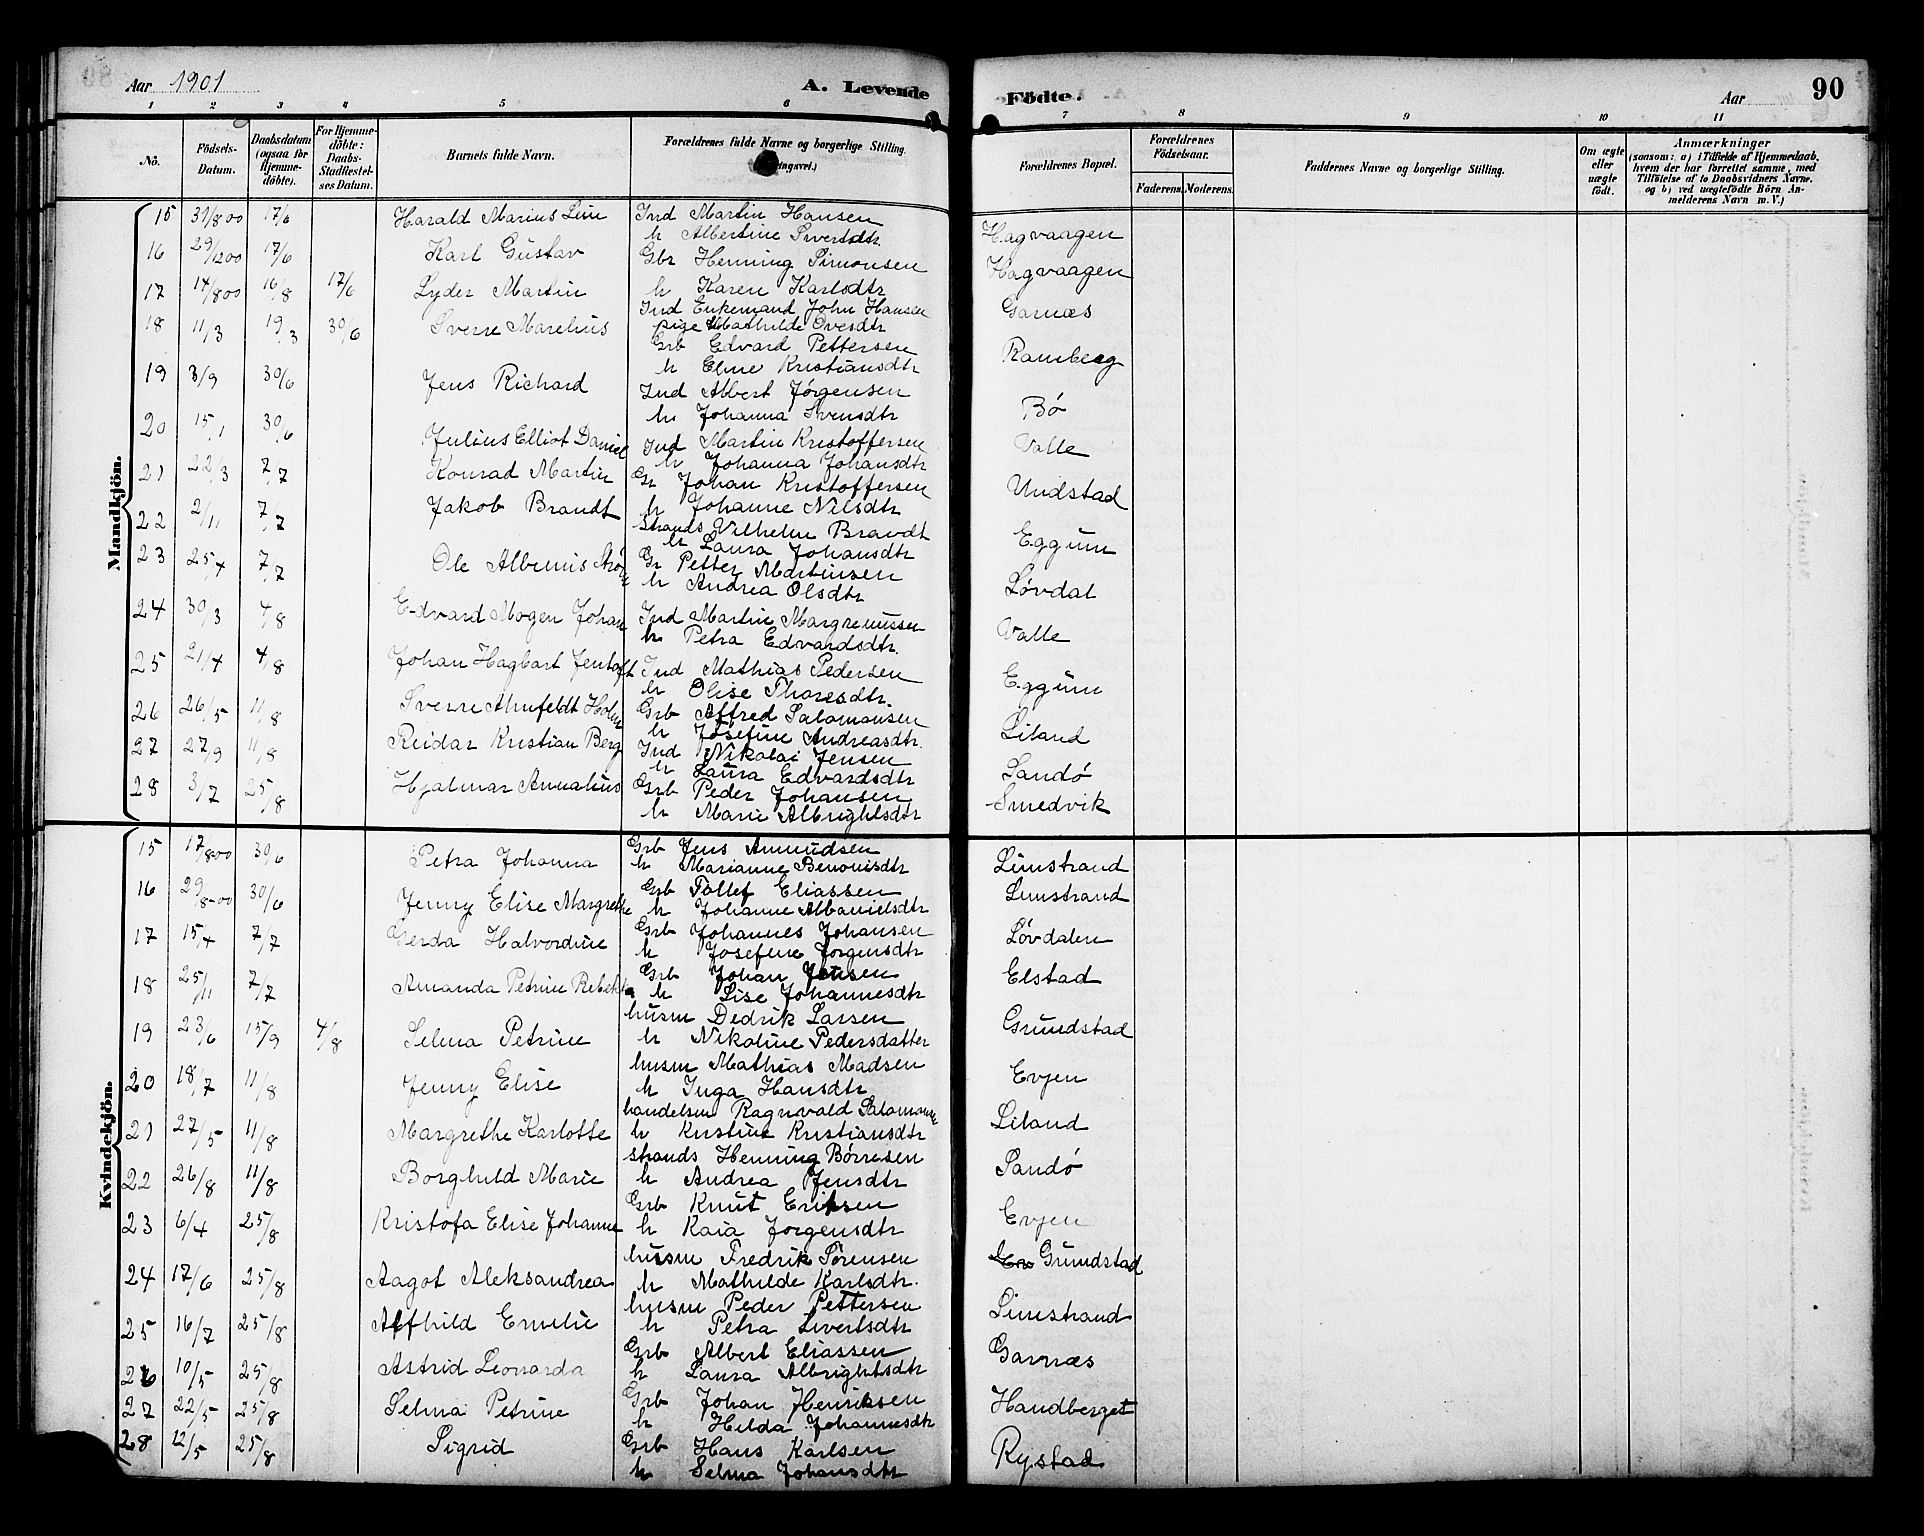 Aar 1901
A. Levende Födte.
Aar
90
1 2 3 4 5 6 7 8 9 10 11
No.
Födsels-Datum.
Daabsdatum (ogsaa for Hjemme-döbte).
For Hjemme-döbte: Daabs-Stadfæstel-ses Datum.
Barnets fulde Navn.
Forældrenes fulde Navne og borgerlige Stilling.
Forældrenes Bopæl.
Forældrenes Födselsaar.
Faderens. Moderens.
Faddernes Navne og borgerlige Stilling.
Om ægte eller uægte födt.
Anmærkninger
(saasom: a) i Tilfælde af Hjemmedaab, hvem der har forrettet samme, med Tilföielse af to Daabsvidners Navne, og b) ved uægtefödte Börn An-melderens Navn m. V.)
Mandkjön.
15 31/8 00 17/6 Harald Marius Ind Martin Hansen
h Albertine Sivertsdtr Hagvaagen
16 29/12 00 17/6 Karl Gustav Gbr Henning Simonsen
h Karen Karlsdtr Hagvaagen
17 14/8 00 16/8 17/6 Lyder Martin Ind Enkemand John Hansen
pige Mathilde Ovesdtr Garnæs
18 11/3 19/3 30/6 Sverre Marelius Grb Edvard Pettersen
h Eline Kristiansdtr Ramberg
19 3/9 30/6 Jens Richard Ind Albert Jørgensen
h Johanna Svensdtr Bö
20 15/1 30/6 Julius Elliot Daniel Ind Martin Kristoffersen
h Johanna Johansdtr Valle
21 22/3 7/7 Konrad Martin Gr Johan Kristoffersen
h Johanne Nilsdtr Undstad
22 2/11 7/7 Jakob Brandt Strands Vilhelm Brandt
h Laura Johansdtr Eggum
23 25/4 7/7 Ole Gr Petter Martinsen
h Andrea Olsdtr Løvdal
24 30/3 4/8 Edvard Mogen Johan Ind Martin
h Petra Edvardsdtr. Valle
25 21/4 4/8 Johan Hagbart Jentoft Ind Mathias Pedersen
h Olise Eggum
26 26/5 11/8 Sverre Holm Grb Alfred Salamonsen
h Josefine Andreasdtr. Liland
27 27/9 11/8 Reidar Kristian Berg Ind Nikolai Jensen
h Laura Edvardsdtr Sandö
28 3/7 25/8 Hjalmar Annalius Grb Peder Johansen
h Marie Albrightsdtr Smedvik
Kvindekjön.
15 17/8 00 30/6 Petra Johanna Grb Jens Amundsen
h Marianne Benonisdtr Limstrand
16 29/8 00 30/6 Jenny Elise Margrethe Grb Tollef Eliassen
h Johanne Albanielsdtr Limstrand
17 15/4 7/7 Gerda Halvordine Grb Johannes Johansen
h Josefine Jörgensdtr Løvdalen
18 25/11 7/7 Amanda Petrine Rebekka Grb Johan Jensen
h Lise Johannesdtr Elstad
19 23/6 15/9 4/8 Selma Petrine husm Dedrik Larsen
h Nikoline Pedersdatter Grundstad
20 18/7 11/8 Jenny Elise husm Mathias Madsen
h Inga Hansdtr Evjen
21 27/5 11/8 Margrethe Karlotte handelsm Ragnvald
h Kristine Kristiansdtr Liland
22 26/8 11/8 Borghild Marie strands Henning Börresen
h Andrea Jensdtr Sandö
23 6/4 25/8 Kristofa Elise Johanne Grb Knut Eriksen
h Kaia Jörgensdtr Evjen
24 17/6 25/8 Aagot Aleksandrea husm Fredrik Sörensen
h Mathilde Karlsdtr. Grundstad
25 16/7 25/8 Alfhild Emelie husm Peder Pettersen
h Petra Sivertsdtr Limstrand
26 10/5 25/8 Astrid Leonarda Grb Albert Eliassen
h Laura Albrightsdtr Garnæs
27 22/5 25/8 Selma Petrine Grb Johan Henriksen
h Hilda Johannesdtr Handberget
28 12/5 25/8 Sigrid Grb Hans Karlsen
h Selma Johansdtr Rystad